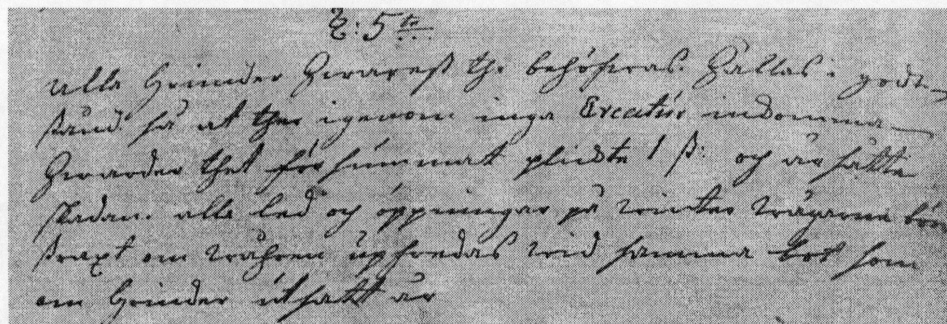 §: 5 te
Alla Grinder hwarest the behöfwas hållas i godt
stånd så at ther igenom inga Creatur inkomma
hwarder thet försummat plickte 1 ß: och ärsätte
skadan. alla led och öppningar på winter wägarne böra
straxt om wåhren upfredas wid samma bot som
om Grinder utsatt är